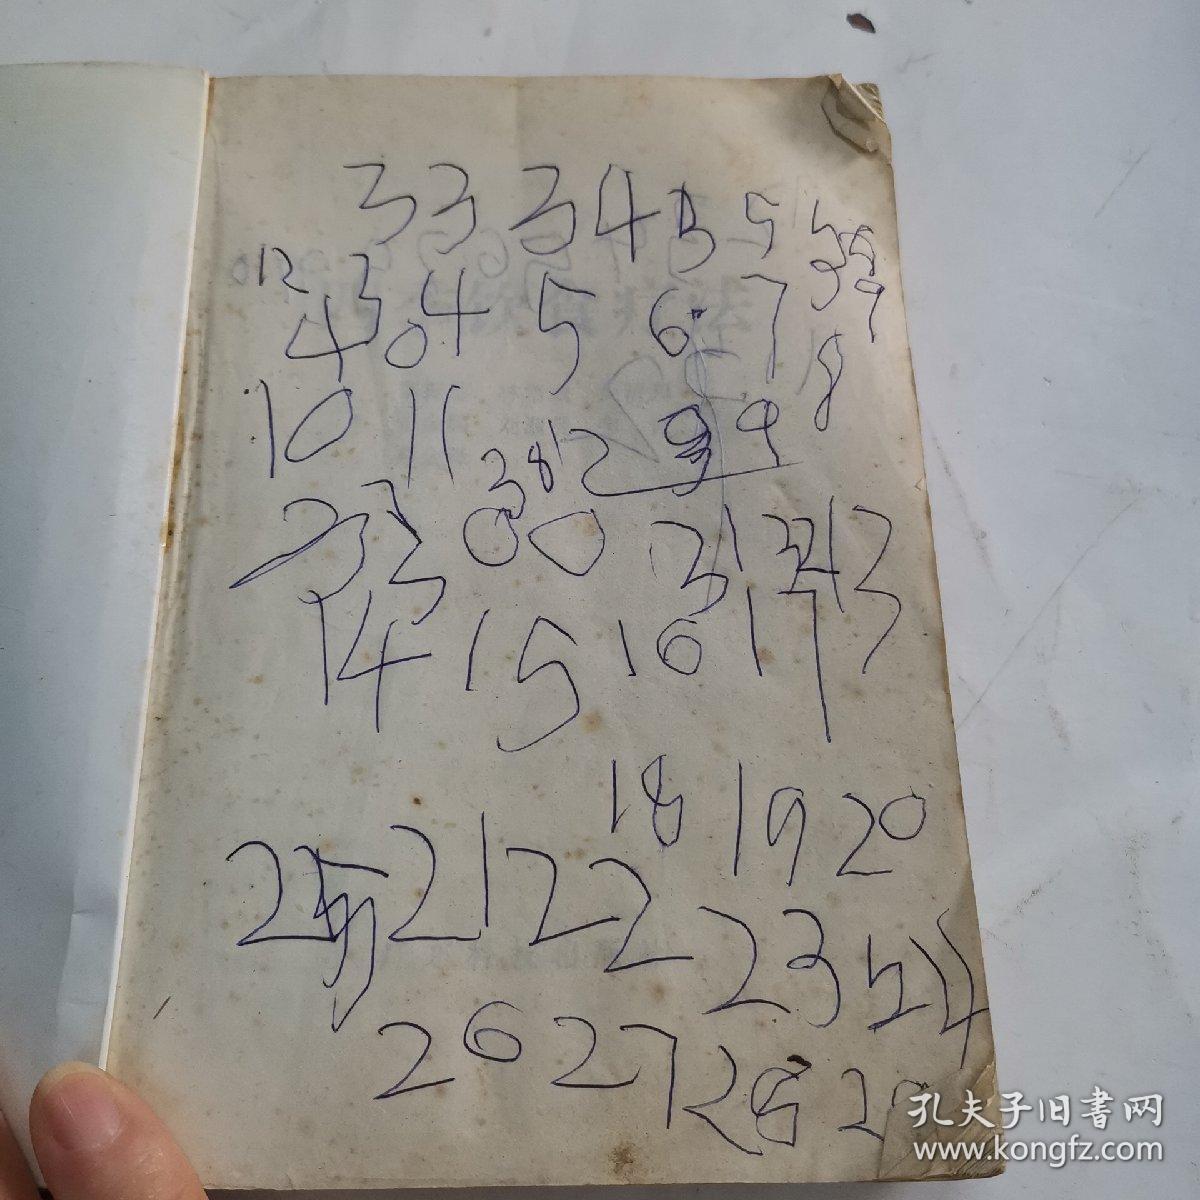 3 3 3 4 5 5 5
12 3
4 0 4 5 6 7 9
8
10 11 38 12 9 9
3 3 0 0 31 32 13
14 15 16 17
18 19 20
25 21 22 23 24
26 27 28 2
孔夫子旧書网
www.kongfz.com